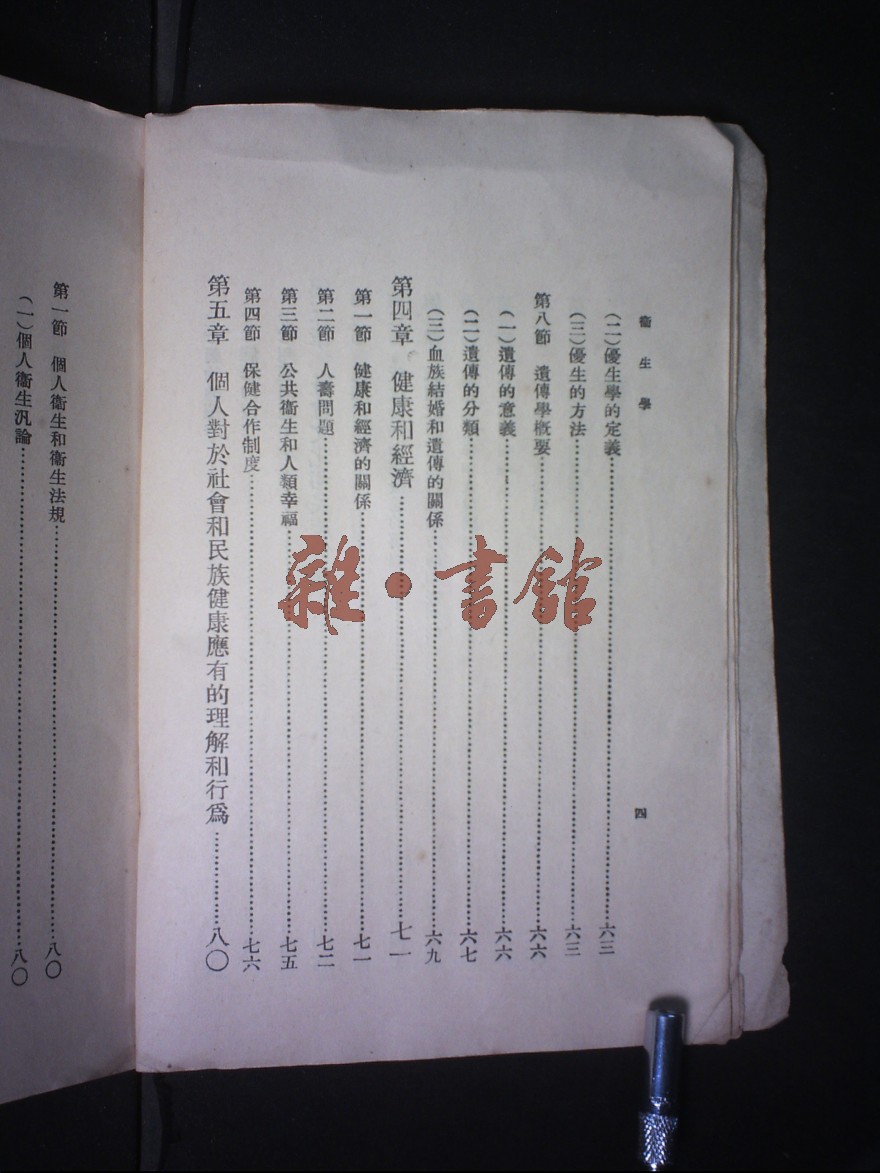 衞生學
四
(二)優生學的定義……六三
(三)優生的方法……六三
第八節 遺傳學概要……六六
(一)遺傳的意義……六六
(二)遺傳的分類……六七
(三)血族結婚和遺傳的關係……六九
第四章 健康和經濟……七一
第一節 健康和經濟的關係……七一
第二節 人壽問題……七二
第三節 公共衞生和人類幸福……七五
第四節 保健合作制度……七六
第五章 個人對於社會和民族健康應有的理解和行爲……八〇
第一節 個人衞生和衞生法規……八〇
(一)個人衞生汎論……八〇
雜·書館